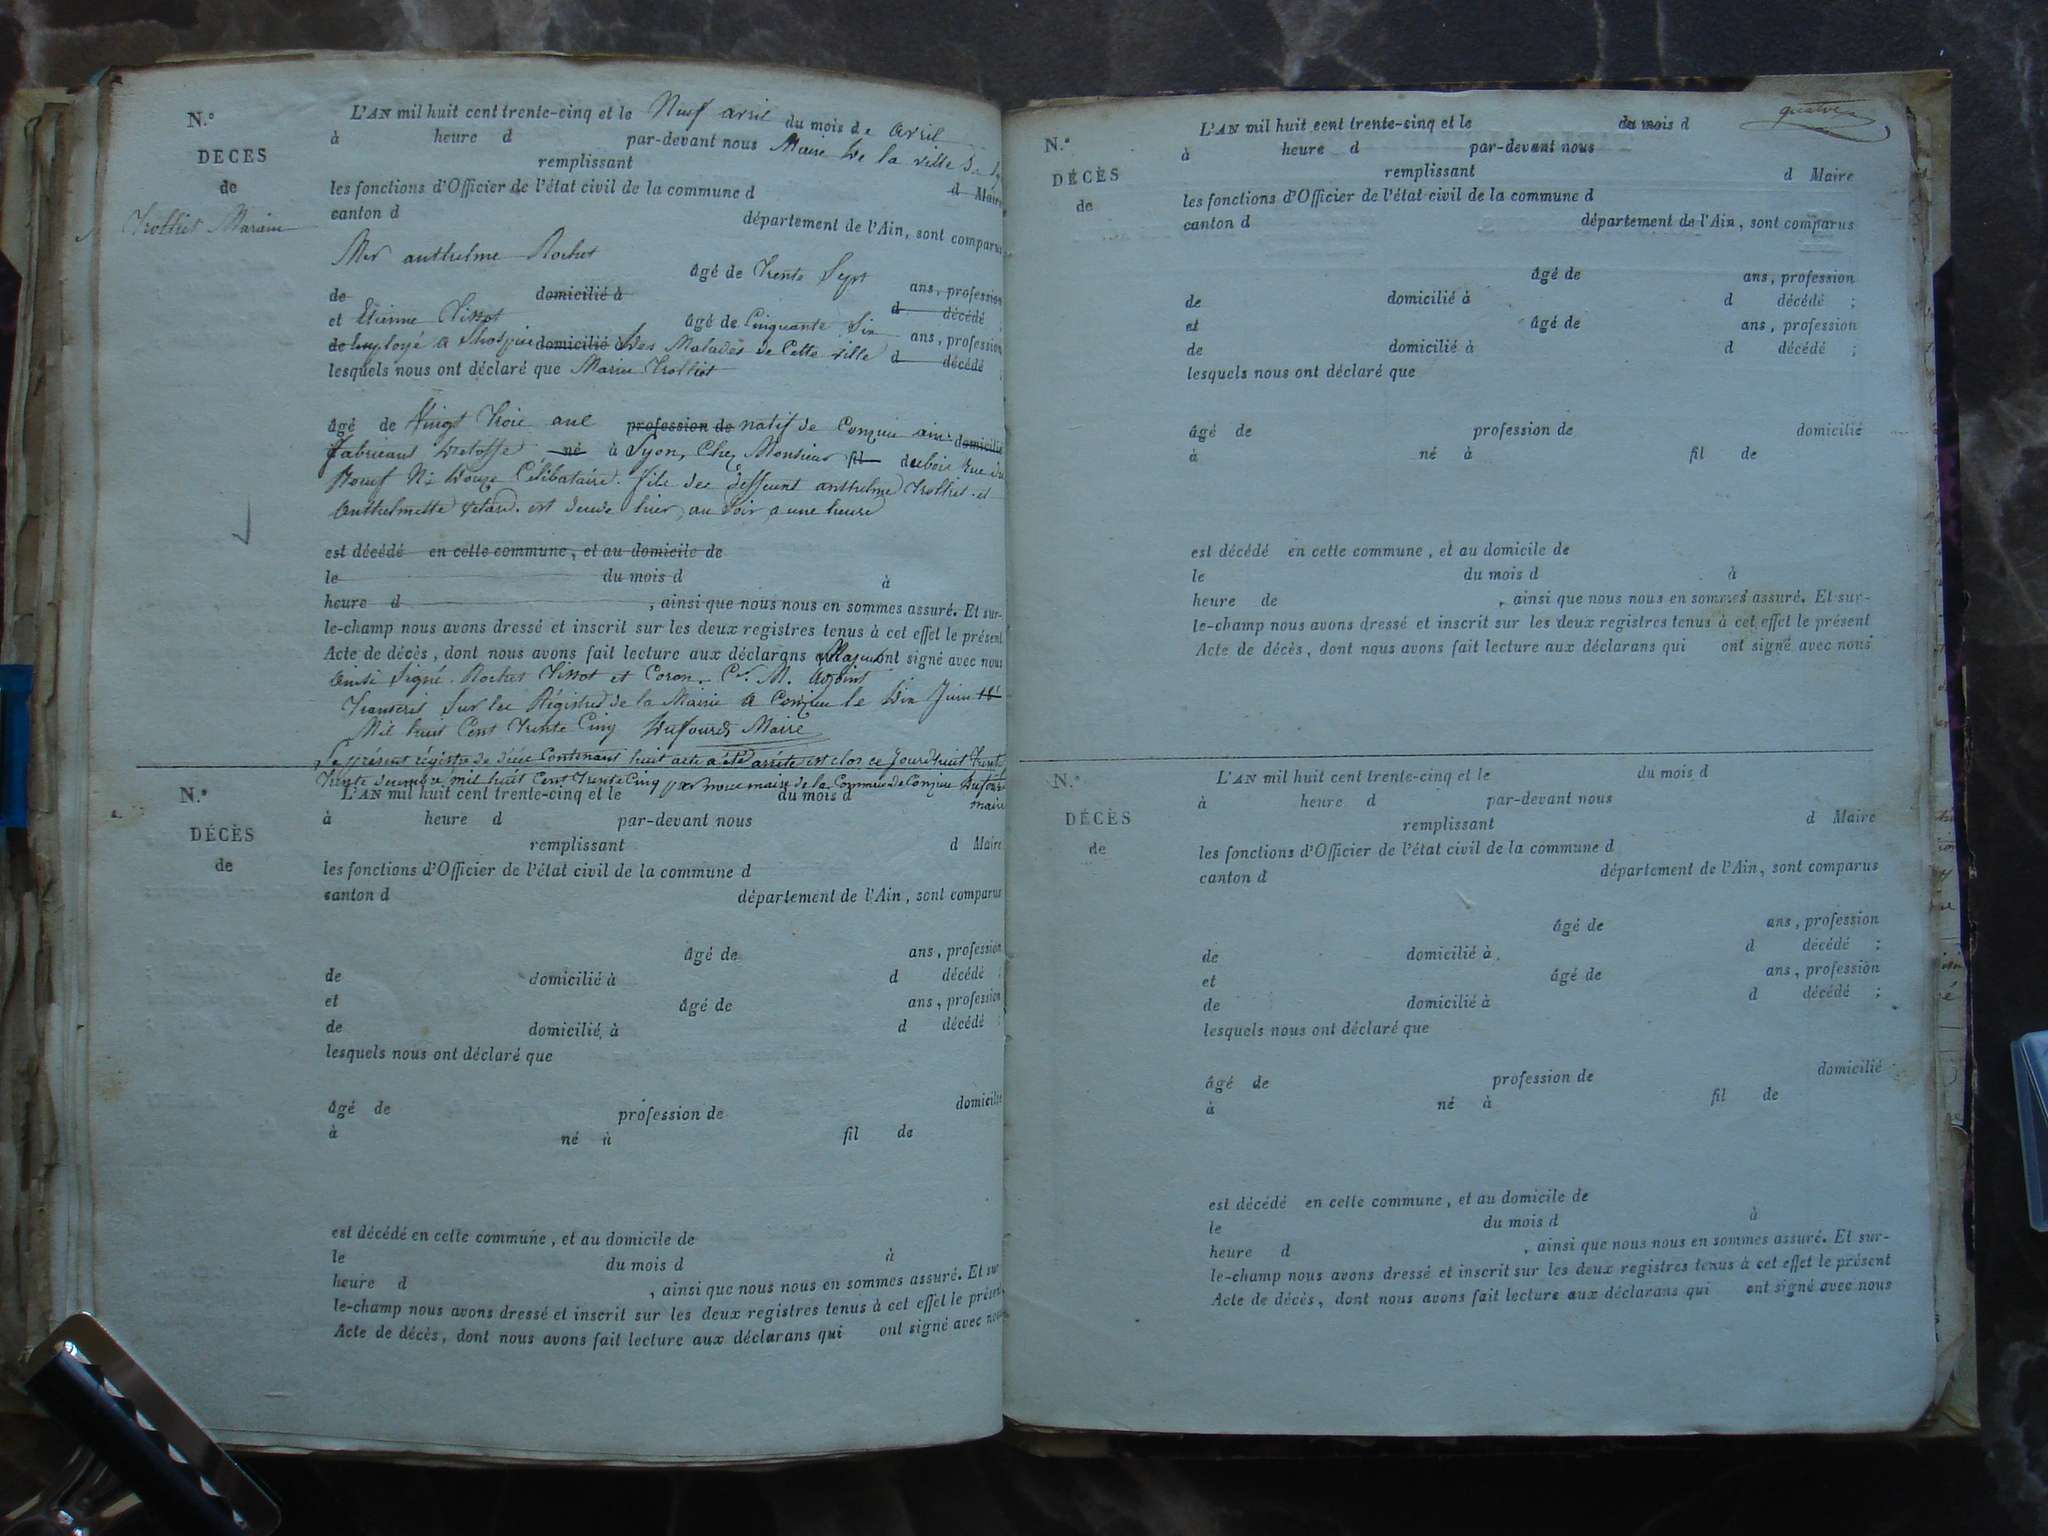 N.°
DECES
de
Trolliet Marin
L'AN mil huit cent trente-cinq et le Neuf avril du mois de avril
à heure d par-devant nous Maire De la ville
remplissant d Maire
les fonctions d'Officier de l'état civil de la commune d
canton d département de l'Ain, sont comparus
anthelme Rochet
âgé de trente Sept ans, profession
de domicilié à d décédé ;
et Etienne Tissot âgé de Cinquante Six ans, profession
de employé a domicilié à des Malades de Cette ville d décédé ;
lesquels nous ont déclaré que Marin Trolliet
âgé de Vingt Trois ans profession de natif de Conzieu ain domicilié
fabricant né à Lyon, Chez Monsieur fil dubois Rue du
Boeuf N. Douze Célibataire. fils des deffunt anthelme Trolliet et
Anthelmette est hier au Soir a une heure
est décédé en cette commune, et au domicile de
le du mois d à
heure d , ainsi que nous nous en sommes assuré. Et sur-
le-champ nous avons dressé et inscrit sur les deux registres tenus à cet effet le présent
Acte de décès, dont nous avons fait lecture aux déclarans Majeurs ont signé avec nous
ainsi Signé. Rochet Tissot et Coron. adjoint
Transcris Sur les Régistres de la Mairie a Conzieu le Dix Juin
Mil huit Cent Trente Cinq Dufour Maire
Le présent régistre de décès Contenant huit acte a été arrêté et clos ce Jourd'huit Trente
Trente decembre mil huit Cent Trente Cinq par nous maire de la Commune de Conzieu Dufour
maire
N.°
DÉCÈS
de
L'AN mil huit cent trente-cinq et le du mois d
à heure d par-devant nous
remplissant d Maire
les fonctions d'Officier de l'état civil de la commune d
canton d département de l'Ain, sont comparus
âgé de ans, profession
de domicilié à d décédé ;
et âgé de ans, profession
de domicilié à d décédé ;
lesquels nous ont déclaré que
âgé de profession de domicilié
à né à fil de
est décédé en cette commune, et au domicile de
le du mois d à
heure d , ainsi que nous nous en sommes assuré. Et sur
le-champ nous avons dressé et inscrit sur les deux registres tenus à cet effet le présent
Acte de décès, dont nous avons fait lecture aux déclarans qui ont signé avec nous
quatre
N.°
DÉCÈS
de
L'AN mil huit cent trente-cinq et le du mois d
à heure d par-devant nous
remplissant d Maire
les fonctions d'Officier de l'état civil de la commune d
canton d département de l'Ain, sont comparus
âgé de ans, profession
de domicilié à d décédé ;
et âgé de ans, profession
de domicilié à d décédé ;
lesquels nous ont déclaré que
âgé de profession de domicilié
à né à fil de
est décédé en cette commune, et au domicile de
le du mois d à
heure de , ainsi que nous nous en sommes assuré. Et sur-
le-champ nous avons dressé et inscrit sur les deux registres tenus à cet effet le présent
Acte de décès, dont nous avons fait lecture aux déclarans qui ont signé avec nous
N.°
DÉCÈS
de
L'AN mil huit cent trente-cinq et le du mois d
à heure d par-devant nous
remplissant d Maire
les fonctions d'Officier de l'état civil de la commune d
canton d département de l'Ain, sont comparus
âgé de ans, profession
de domicilié à d décédé ;
et âgé de ans, profession
de domicilié à d décédé ;
lesquels nous ont déclaré que
âgé de profession de domicilié
à né à fil de
est décédé en cette commune, et au domicile de
le du mois d à
heure d , ainsi que nous nous en sommes assuré. Et sur-
le-champ nous avons dressé et inscrit sur les deux registres tenus à cet effet le présent
Acte de décès, dont nous avons fait lecture aux déclarans qui ont signé avec nous